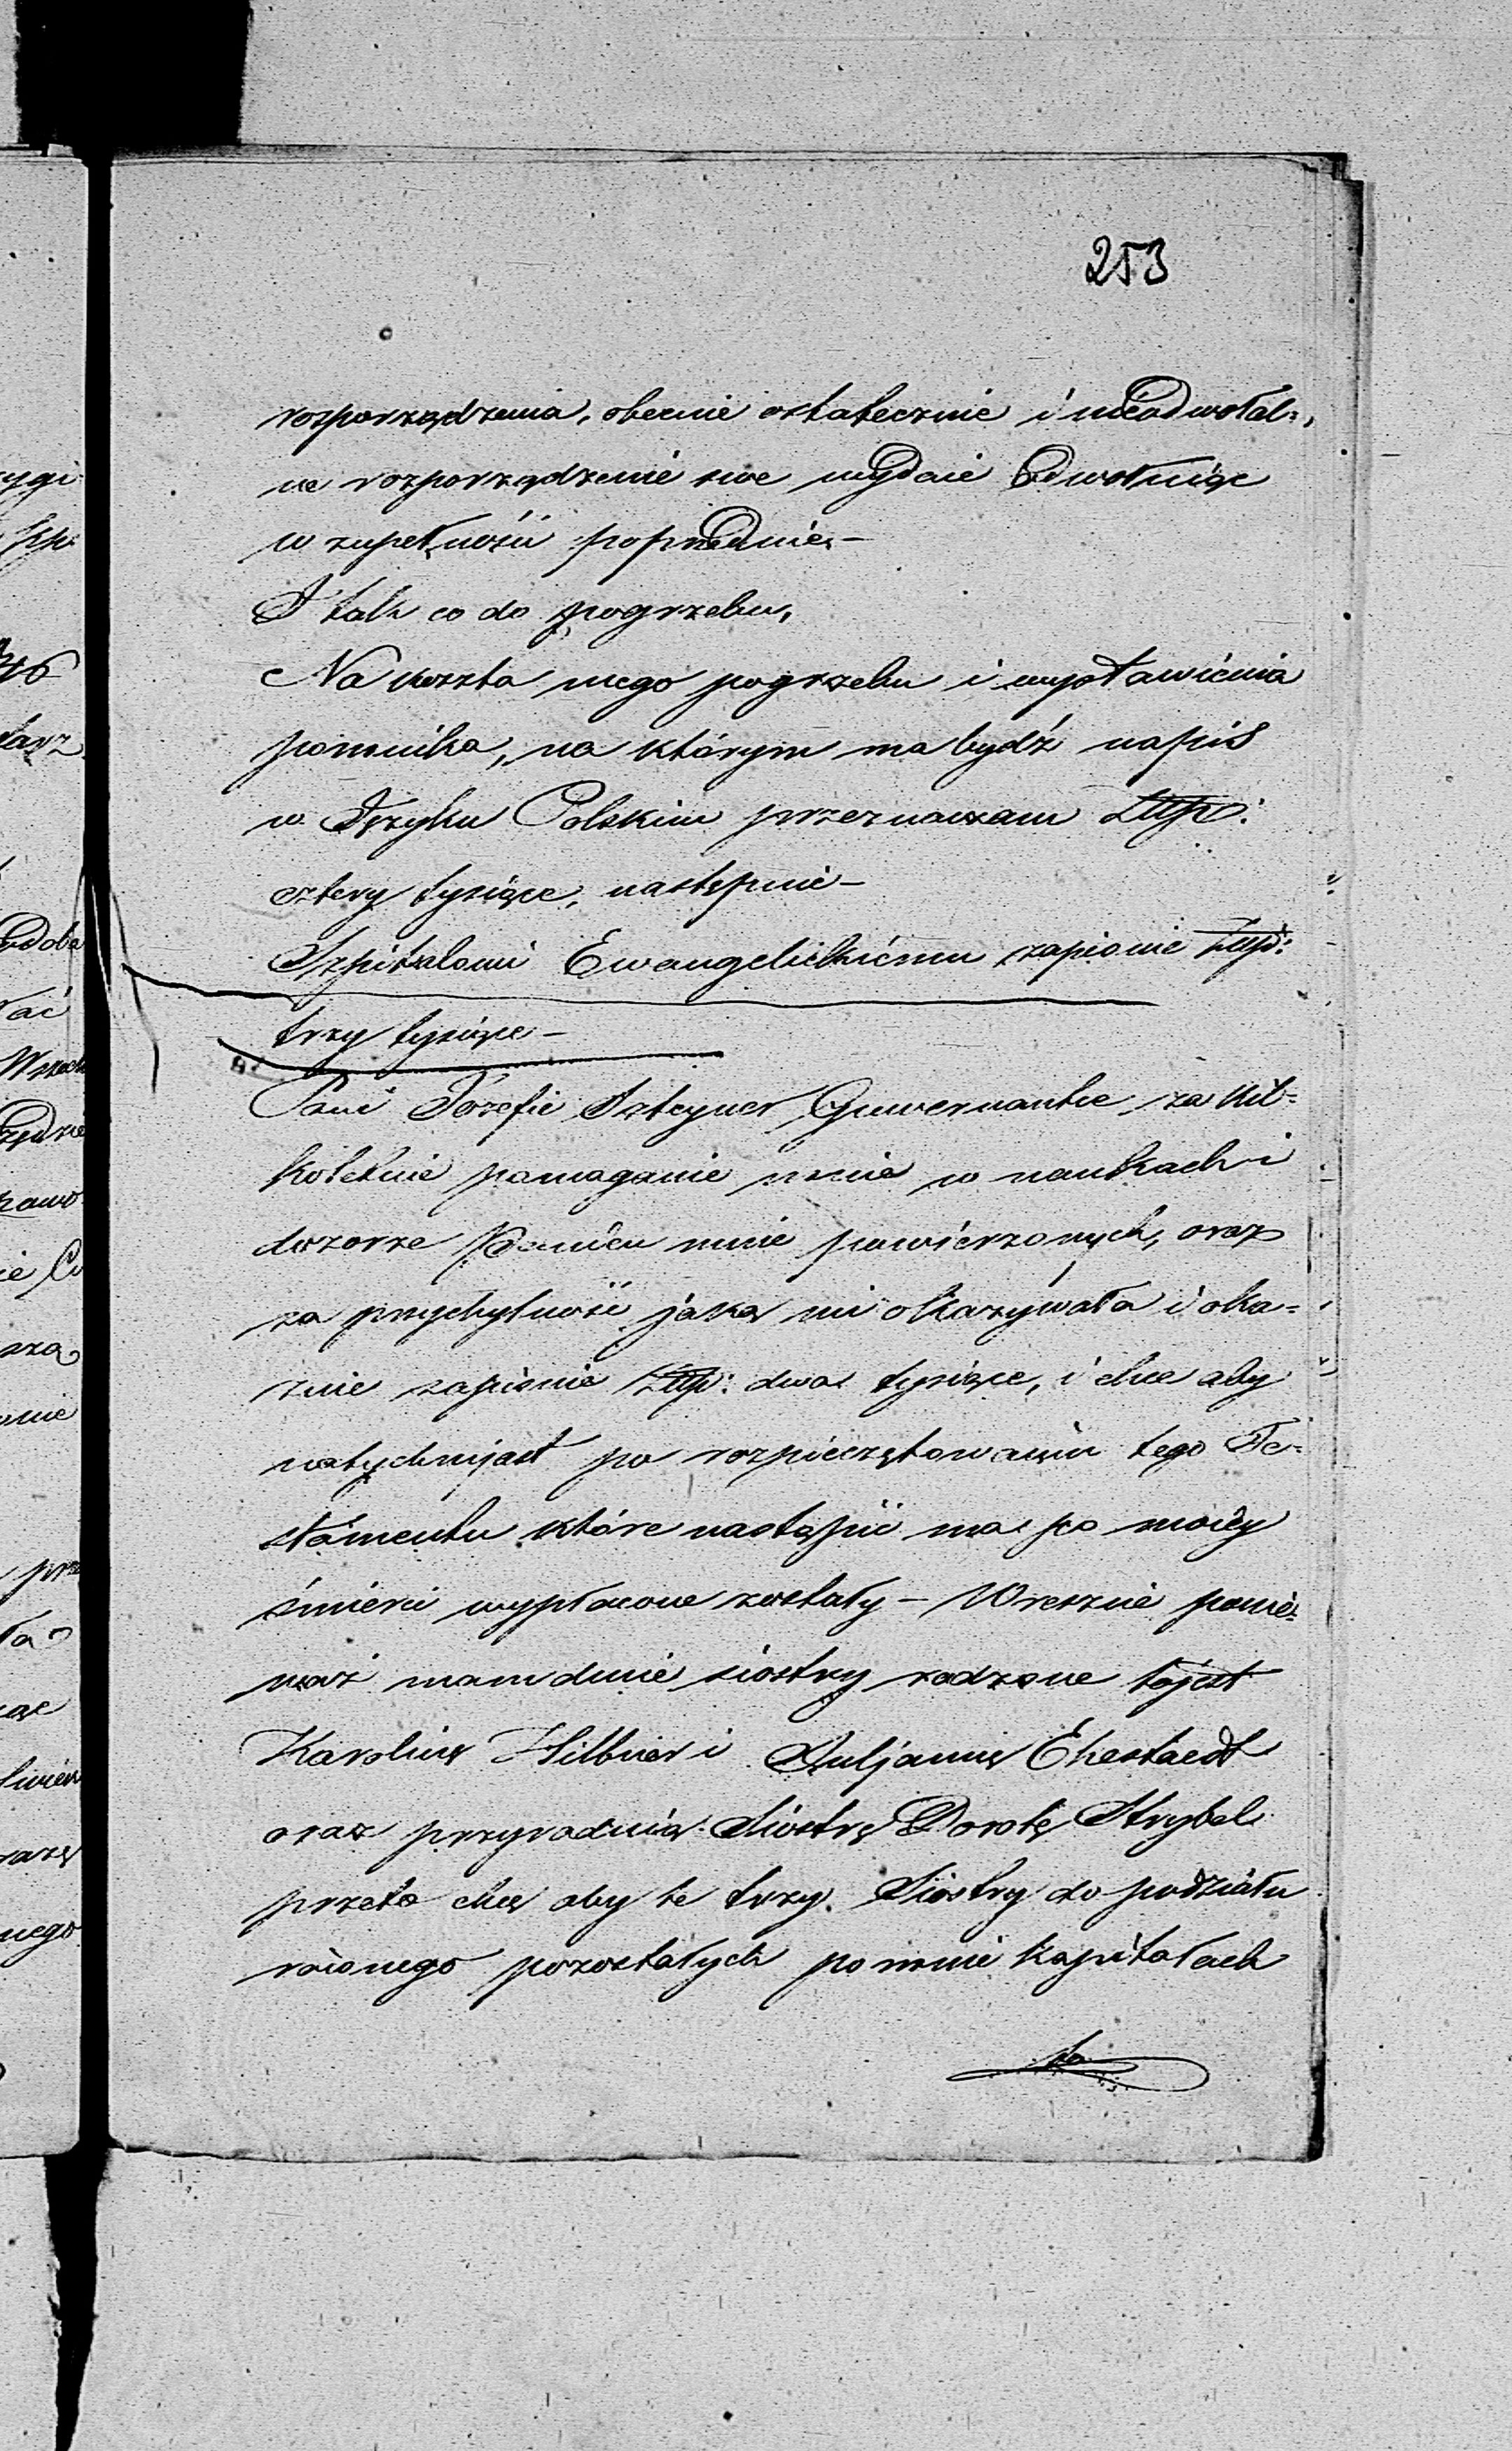 253
rozporządzenia, obecnie ostatecznie i nieodwołal=
ne rozporządzenie swe wydaie Odwołuiąc
w zupełności poprzednie, –
I tak co do pogrzebu,
Na koszta mego pogrzebu i wystawienia
pomnika, na którym ma bydź napis
w Języku Polskim przeznaczam Złłp:
cztery tysiące, następnie –
Szpitalowi Ewangielickiemu zapisuie Złłp:
trzy tysiące –
Pani Józefie Szteyner Guwernantce za kil=
koletnie pomaganie mnie w naukach i
dozorze Panien mnie powierzonych, oraz
za przychylność jaką mi okazywała i oka=
zuie zapisuie Złłp: dwa tysiące, i chce aby
natychmiast po rozpieczętowaniu tego Te=
stamentu które nastąpić ma po moiey
śmierci wypłacone zostały – Wreszcie ponie=
waż mam dwie siostry rodzone tojest
Karolinę Hilbner i Juljannę Ekestaedt
oraz przyrodnią Siostrę Dorotę Strybel
przeto chcę aby te trzy Siostry do podziału
równego pozostałych po mnie kapitałach